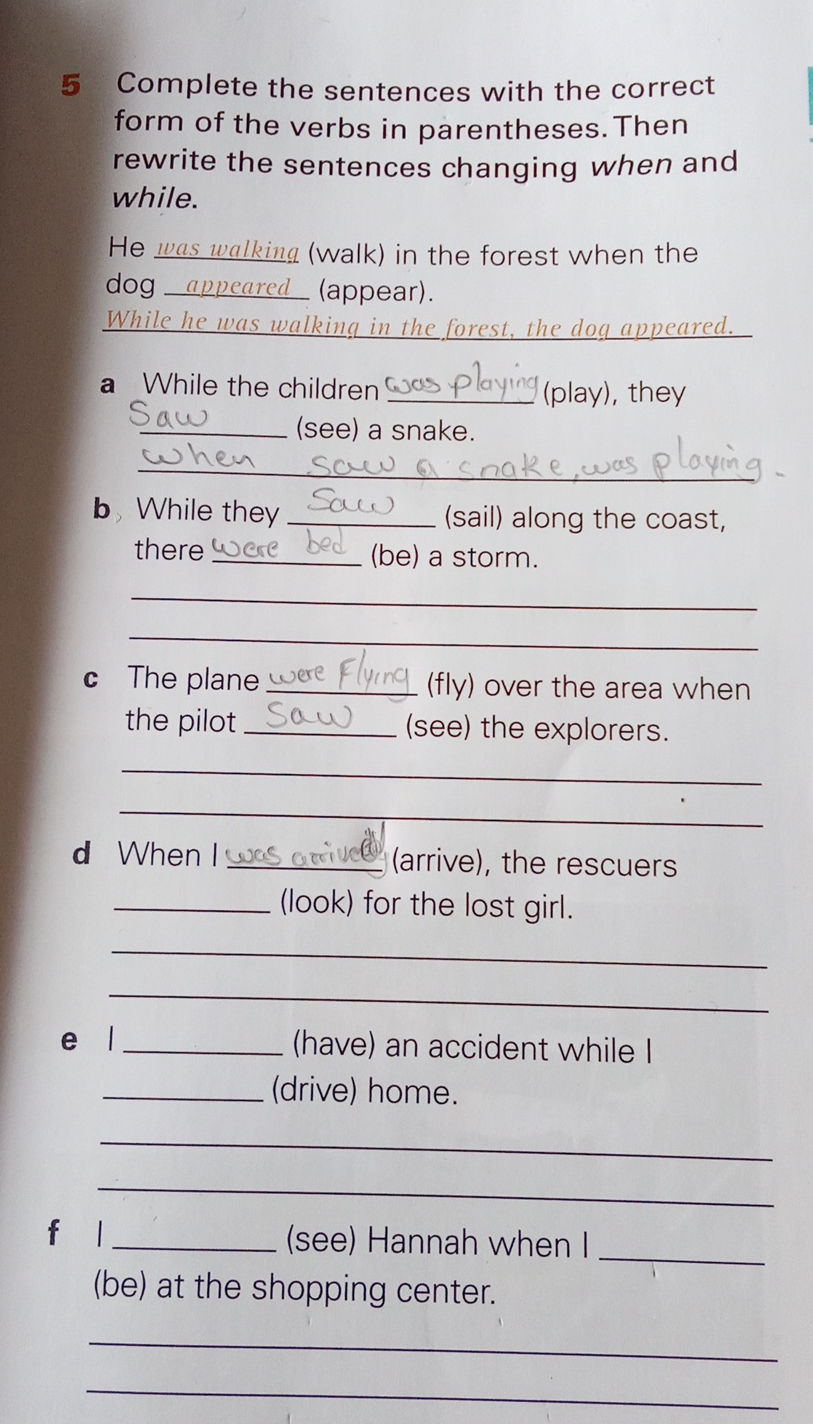 5 Complete the sentences with the correct
form of the verbs in parentheses. Then
rewrite the sentences changing when and
while.
He was walking (walk) in the forest when the
dog appeared (appear).
While he was walking in the forest, the dog appeared.
a While the children was playing (play), they
Saw (see) a snake.
when saw a snake, was playing.
b While they Saw (sail) along the coast,
there were bed (be) a storm.
c The plane were Flying (fly) over the area when
the pilot Saw (see) the explorers.
d When I was (arrive), the rescuers
(look) for the lost girl.
e I (have) an accident while I
(drive) home.
f I (see) Hannah when I
(be) at the shopping center.